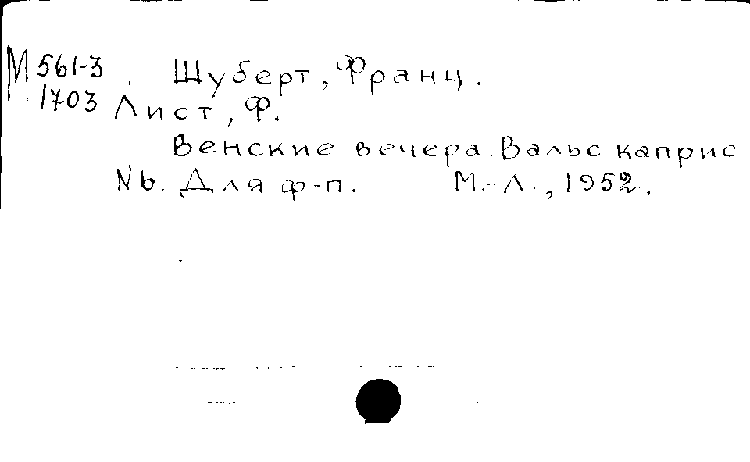 М 561-3 Шуберт, Франц.
1703 Лист, Ф.
Венские вечера. Вальс каприс
N 6. Для ф-п. М.-Л., 1952.